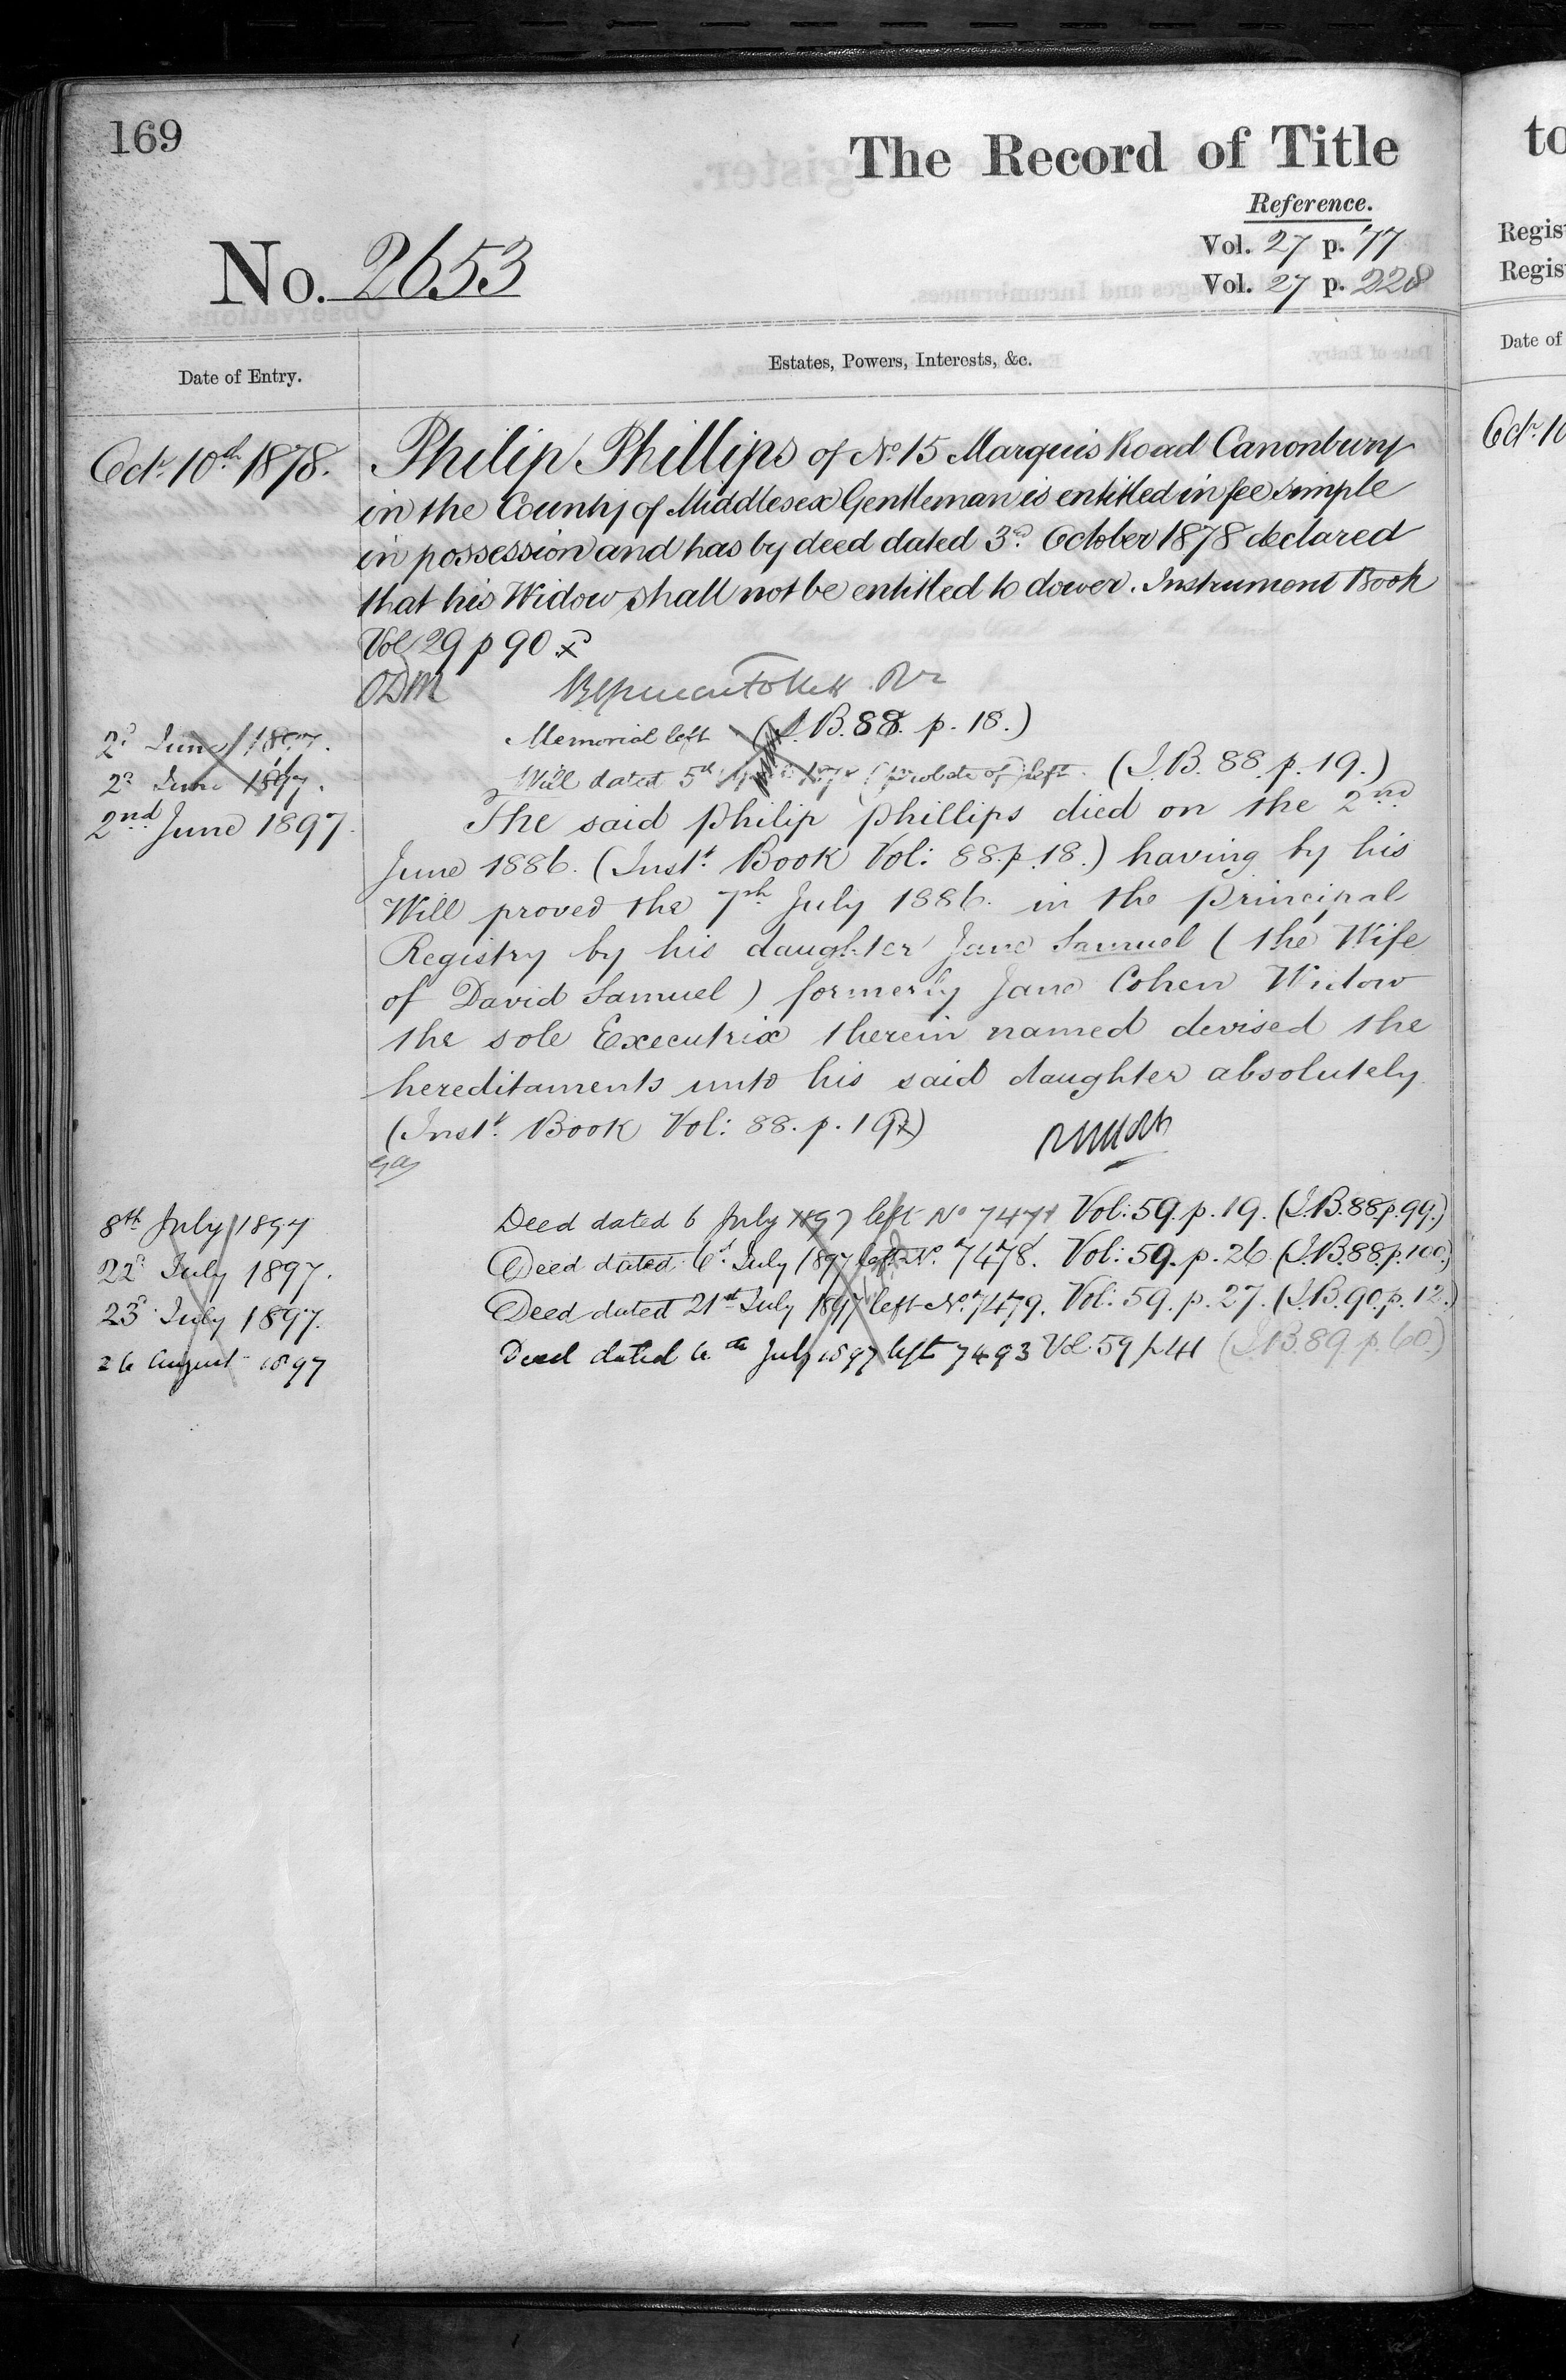 169
The Record of Title
Reference.
Vol. 27 p. 77
Vol. 27 p. 228
No. 2653
Date of Entry.
Estates, Powers, Interests, &c.
Oct. 10th 1878.
Philip Phillips of No. 15 Marquis Road Canonbury
in the County of Middlesex Gentleman is entitled in fee simple
in possession and has by deed dated 3d. October 1878 declared
that his Widow shall not be entitled to dower. Instrument Book
Vol 29 p 90 x
2d June 1897.
Memorial left (I.B. 88. p. 18.)
2d June 1897.
Will dated 5th (probate of) left. (I.B. 88. p. 19.)
2nd June 1897.
The said Philip Phillips died on the 2nd
June 1886. (Inst. Book Vol: 88. p. 18.) having by his
Will proved the 7th July 1886. in the Principal
Registry by his daughter Jane Samuel (the Wife
of David Samuel) formerly Jane Cohen Widow
the sole Executrix therein named devised the
hereditaments unto his said daughter absolutely.
(Inst. Book Vol: 88. p. 19x)
8th July 1897
Deed dated 6 July 1897 left No 7471 Vol: 59. p. 19. (I.B. 88 p. 99.)
22d July 1897.
Deed dated 6th July 1897 left No. 7478. Vol: 59. p. 26. (I.B. 88 p. 100.)
23d July 1897.
Deed dated 21st July 1897 left No. 7479. Vol: 59. p. 27. (I.B. 90. p. 12.)
26 August 1897
Deed dated 6th July 1897 left 7493 Vol. 59 p 41 (I.B. 89. p. 60.)
to
Regis
Regis
Date of
Oct. 10